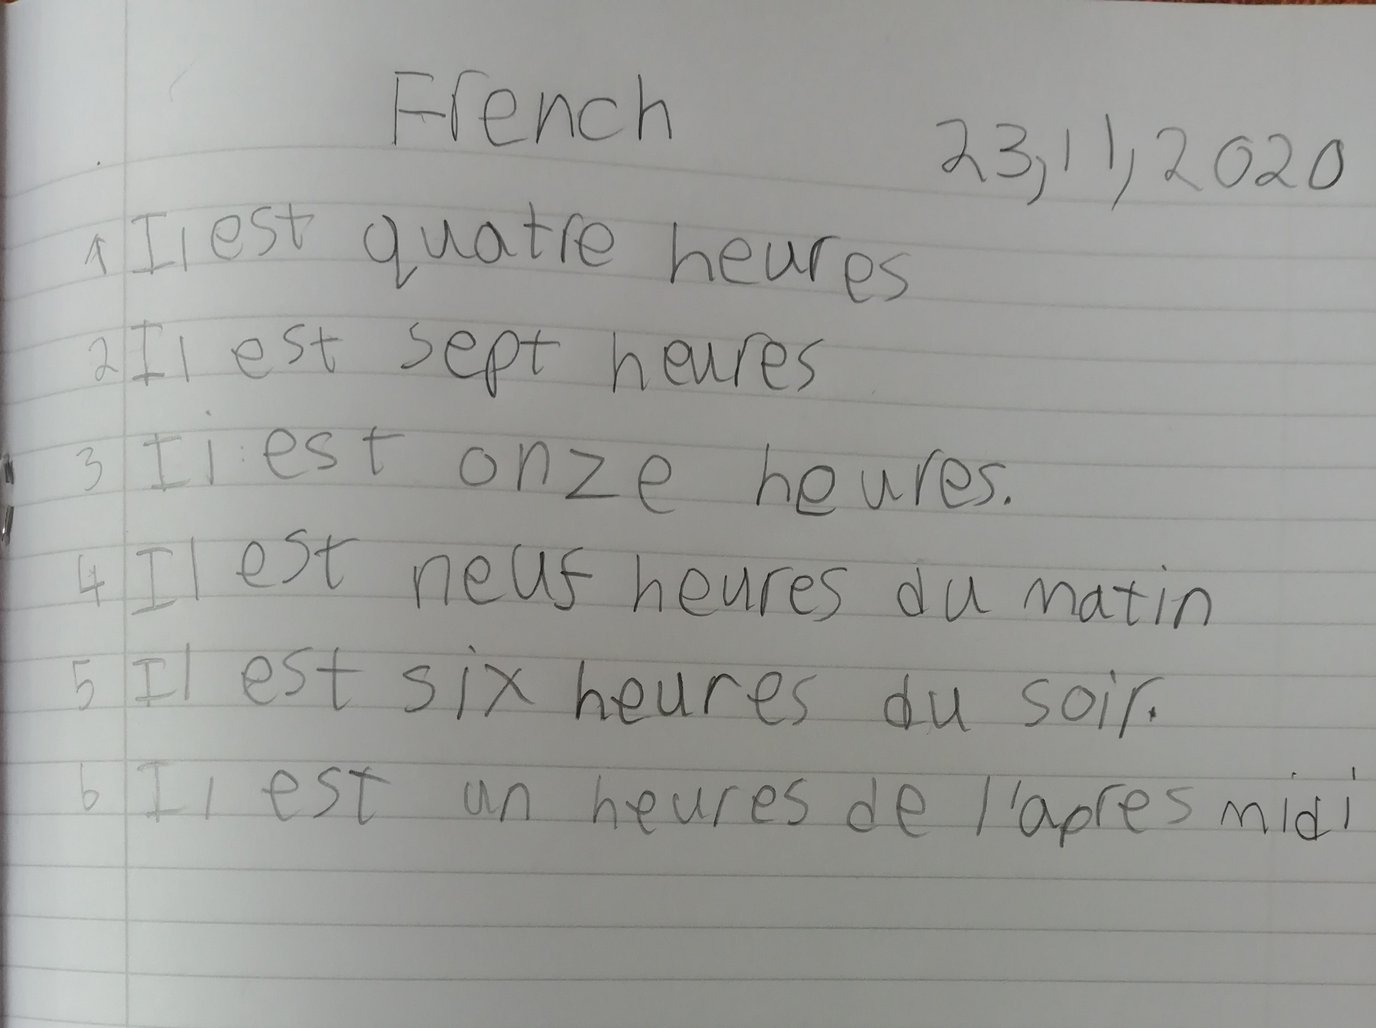 French
23,11,2020
1 Il est quatre heures
2 Il est sept heures
3 Ii est onze heures.
4 Il est neuf heures du matin
5 Il est six heures du soir.
6 Il est un heures de l'apres midi